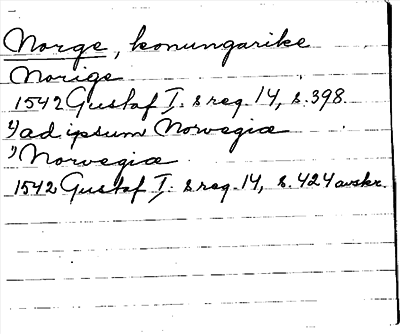 Norge, konungarike
Norige
1542 Gustaf I. s reg. 14, s. 398.
"ad ipsum Norvegiæ
"Norvegiæ
1542 Gustaf I. s reg. 14, s. 424 avskr.